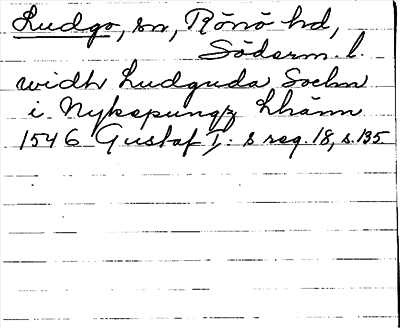 Ludgo, sn, Rönö hd,
Söderm. l.
widh Ludguda Sochn
i Nykopungz Lhänn
1546 Gustaf I: s reg. 18, s. 135.